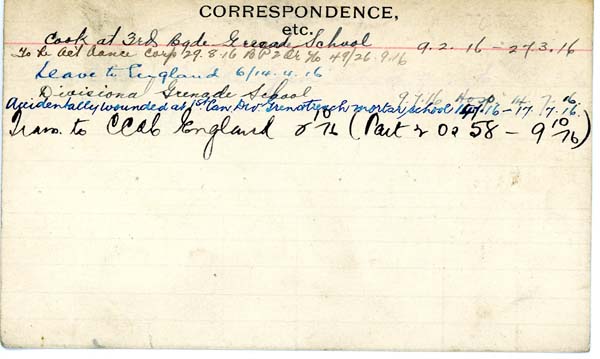 CORRESPONDENCE,
etc.
Cook at 3rd Bgde Grenade School 9.2.16 - 27.3.16
To be Act Lance Corp 29.8.16 B P 2 Or No 49/26.9.16
Leave to England 6/14.4.16
Divisional Grenade School 9.7.16 Hosp 14.7.16
Accidentally wounded at 1st Can Div Gren & Trench mortar school 14.7.16 - 17.7.16.
Trans. to CCAC England 8 10/16 (Part 2 Oo 58 - 9 10/16)